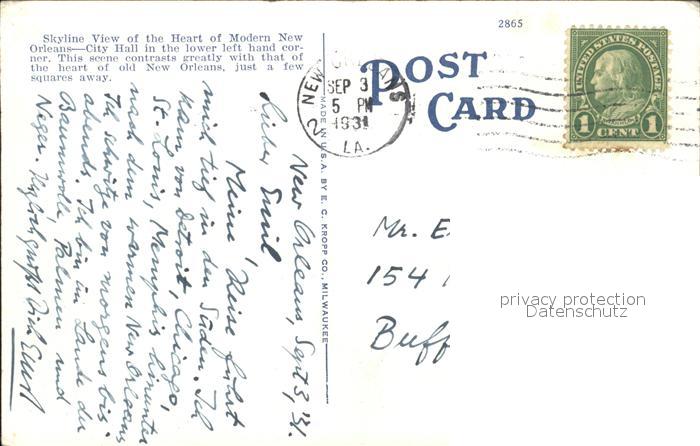 Skyline View of the Heart of Modern New
Orleans—City Hall in the lower left hand cor-
ner. This scene contrasts greatly with that of
the heart of old New Orleans, just a few
squares away.
2865
POST
CARD
NEW ORLEANS
SEP 3
5 PM
1931
LA.
2
UNITED STATES POSTAGE
FRANKLIN
1 CENT 1
MADE IN U.S.A. BY E. C. KROPP CO., MILWAUKEE
New Orleans, Sept 3, '31.
Lieber Emil,
Meine Reise führt
mich tief in den Süden. Ich
kam von Detroit, Chicago,
St. Louis, Memphis hinunter
nach dem warmen New Orleans
Ich schwitze von morgens bis
abends. Ich bin im Lande der
Baumwolle, Palmen und
Neger. Herzlich grüßt Dich Ernst
Mr. E
154
Buff
privacy protection
Datenschutz